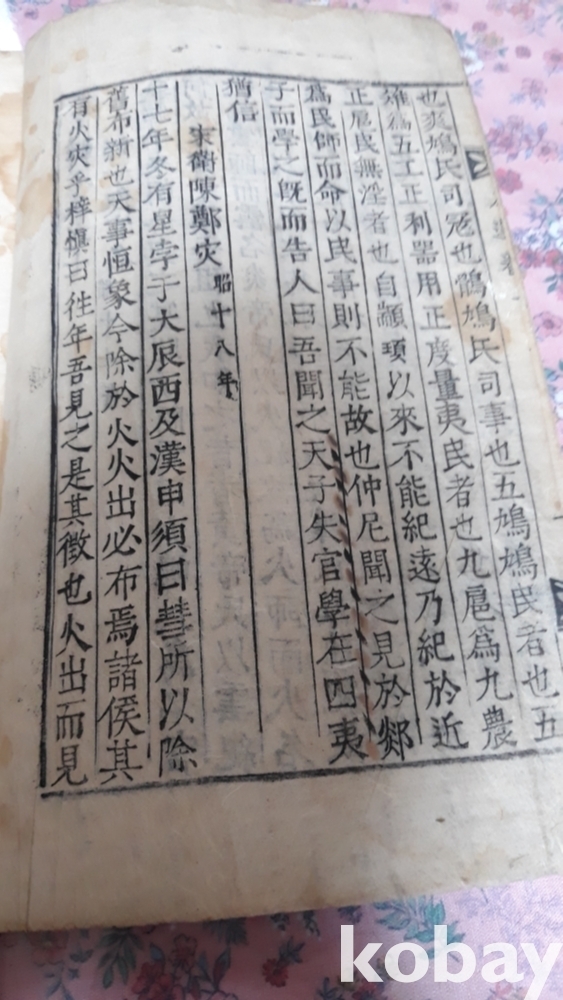 也爽鳩氏司冦也鶻鳩氏司事也五鳩鳩民者也五
雉為五工正利器用正度量夷民者也九扈為九農
正扈民無淫者也自顓頊以來不能紀遠乃紀於近
為民師而命以民事則不能故也仲尼聞之見於郯
子而學之旣而告人曰吾聞之天子失官學在四夷
猶信
宋衛陳鄭灾 昭十八年
十七年冬有星孛于大辰西及漢申須曰彗所以除
舊布新也天事恒象今除於火火出必布焉諸侯其
有火灾乎梓慎曰徃年吾見之是其徵也火出而見
kobay